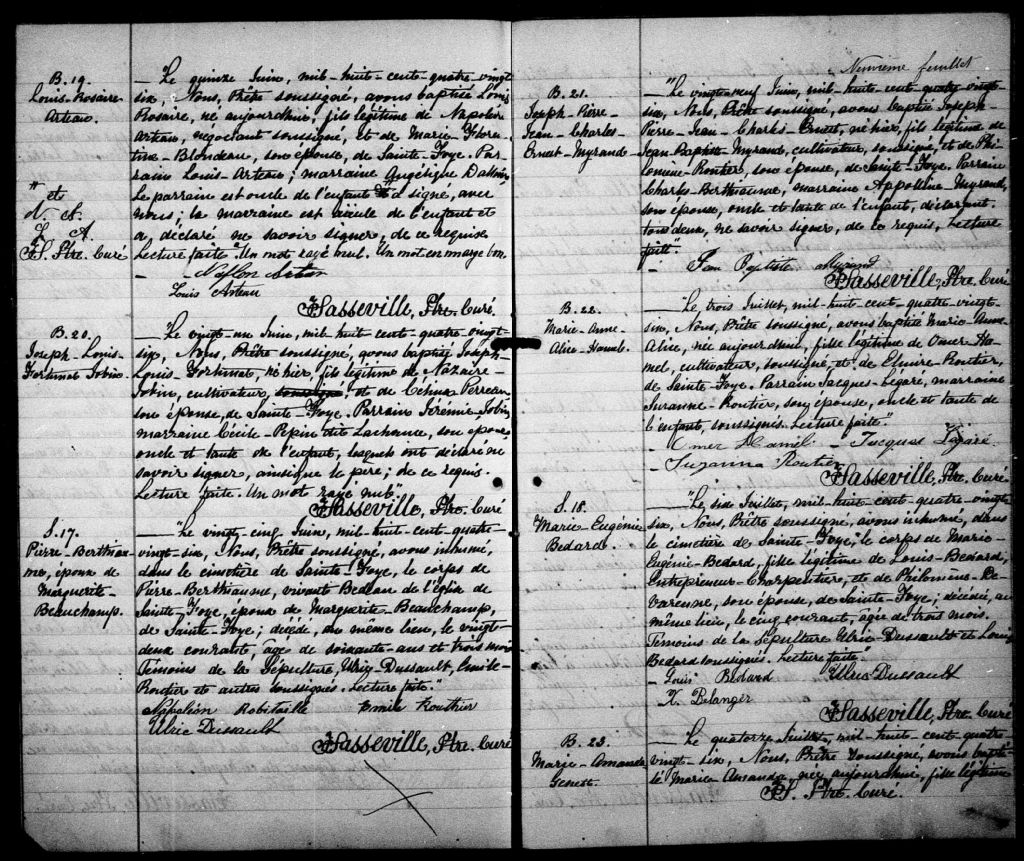 B. 19.
Louis-Rosaire-
Arteau.
" et
N. A.
L. A.
FS. Ptre. Curé
— "Le quinze Juin, mil-huit-cent-quatre-vingt-
six, Nous, Prêtre soussigné, avons baptisé Louis
Rosaire, né aujourd'hui, fils légitime de Napoléon
Arteau, négociant soussigné, et de Marie-Floren-
tine-Blondeau, son épouse, de Sainte-Foye. Par-
rain Louis-Arteau; marraine Angélique
Le parrain est oncle de l'enfant a signé, avec
nous; la marraine est aieule de l'enfant et
a, déclaré ne savoir signer, de ce requise
Lecture faite". Un mot rayé nul. Un mot en marge bon
Louis Arteau
FSasseville, Ptre. Curé
B. 20.
Joseph-Louis-
Fortunat Jobin.
— "Le vingt-un Juin, mil-huit-cent-quatre-vingt-
six, Nous, Prêtre soussigné, avons baptisé Joseph-
Louis-Fortunat, né hier, fils légitime de Nazaire-
Jobin, cultivateur soussigné, et de Célina Perreau
son épouse, de Sainte-Foye. Parrain Jérémie-Jobin,
marraine Cécile-Pepin dit Lachance, son épouse,
oncle et tante de l'enfant, lesquels ont déclaré ne
savoir signer, ainsi que le père; de ce requis.
Lecture faite. Un mot rayé nul"
FSasseville, Ptre. Curé
S. 17.
Pierre-Berthiau-
me, époux de
Marguerite-
Beauchamp.
— "Le vingt-cinq Juin, mil-huit-cent-quatre-
vingt-six, Nous, Prêtre soussigné, avons inhumé,
dans le cimetière de Sainte-Foye, le corps de
Pierre-Berthiaume, vivant Bedeau de l'église de
Sainte-Foye, époux de Marguerite-Beauchamp,
de Sainte-Foye; décédé, du même lieu, le vingt-
deux courant, âgé de soixante-ans et trois mois
Témoins de la Sépulture, Ulric-Dussault, Emile-
Routier et autres soussignés. Lecture faite."
Napoléon Robitaille Emile Routhier
Ulric Dussault
FSasseville, Ptre. Curé
Neuvième feuillet
B. 21.
Joseph-Pierre
Jean-Charles-
Ernest-Myrand
"Le vingt-neuf Juin, mil-huit-cent-quatre-vingt-
six, Nous, Prêtre soussigné, avons baptisé Joseph-
Pierre-Jean-Charles-Ernest, né hier, fils légitime de
Jean-Baptiste-Myrand, cultivateur, soussigné, et de Phi-
lomène-Routier, son épouse, de Sainte-Foye. Parrain
Charles-Berthiaume, marraine Appolline-Myrand,
son épouse, oncle et tante de l'enfant, déclarant
tous deux, ne savoir signer, de ce requis, Lecture
faite".
Jean Baptiste Myrand
FSasseville Ptre. Curé
B. 22.
Marie-Anne
Alice-Hamel.
"Le trois Juillet, mil-huit-cent-quatre-vingt-
six, Nous, Prêtre soussigné, avons baptisé Marie-Anne
Alice, née aujourd'hui, fille légitime de Omer-Ha-
mel, cultivateur, soussigné, et de Elmire-Routier,
de Sainte-Foye. Parrain Jacques-Légaré, marraine
Suzanne-Routier, son épouse, oncle et tante de
l'enfant, soussignés. Lecture faite".
Omer Hamel — Jacques Légaré
— Suzanna Routier
FSasseville, Ptre. Curé
S. 18.
Marie-Eugénie
Bedard.
"Le six Juillet, mil-huit-cent-quatre-vingt-
six, Nous, Prêtre soussigné, avons inhumé, dans
le cimetière de Sainte-Foye, le corps de Marie-
Eugénie-Bedard, fille légitime de Louis-Bedard,
Entrepreneur-Charpentier, et de Philomène-De-
Varenne, son épouse, de Sainte-Foye; décédée, au
même lieu, le cinq courant, âgée de trois mois.
Témoins de la Sépulture Ulric-Dussault et Louis
Bedard soussignés. Lecture faite"
— Louis Bedard Ulric Dussault
X. Belanger
FSasseville, Ptre. Curé
B. 23.
Marie-Amanda
Genest.
— Le quatorze Juillet, mil-huit-cent-quatre-
vingt-six, Nous, Prêtre soussigné, avons bapti-
sé Marie Amanda, née aujourd'hui, fille légitime
FS. Ptre. Curé.